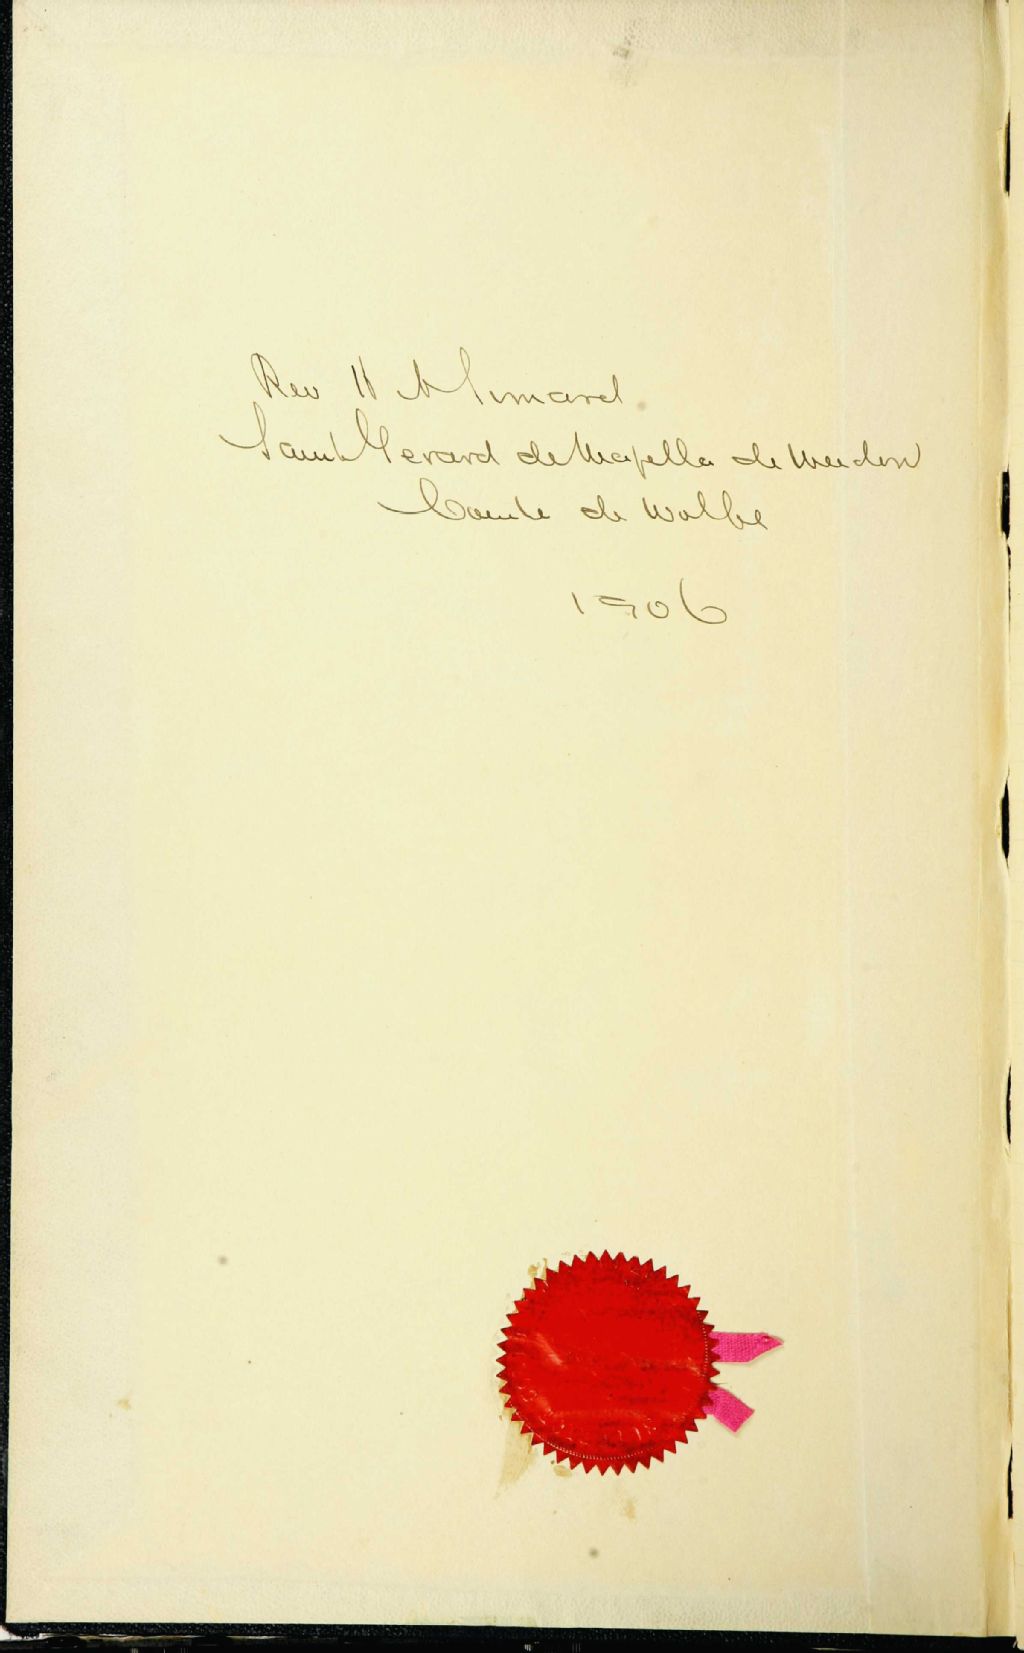 Rev H A Simard
Saint Gerard de Majella de Weedon
Comté de Wolfe
1906